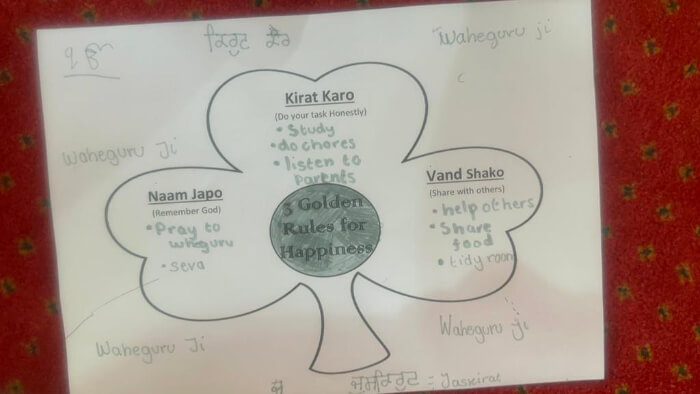 ੴ
ਕਿਰਟ ਕੈਰ
Waheguru ji
Kirat Karo
(Do your task Honestly)
• Study
• do chores
• listen to
parents
Waheguru Ji
Naam Japo
(Remember God)
• Pray to
wheguru
• seva
3 Golden
Rules for
Happiness
Vand Shako
(Share with others)
• help others
• Share
food
• tidy room
Waheguru Ji
Waheguru ji
ਜੁਸਕਿਰਟ = Jaskirat